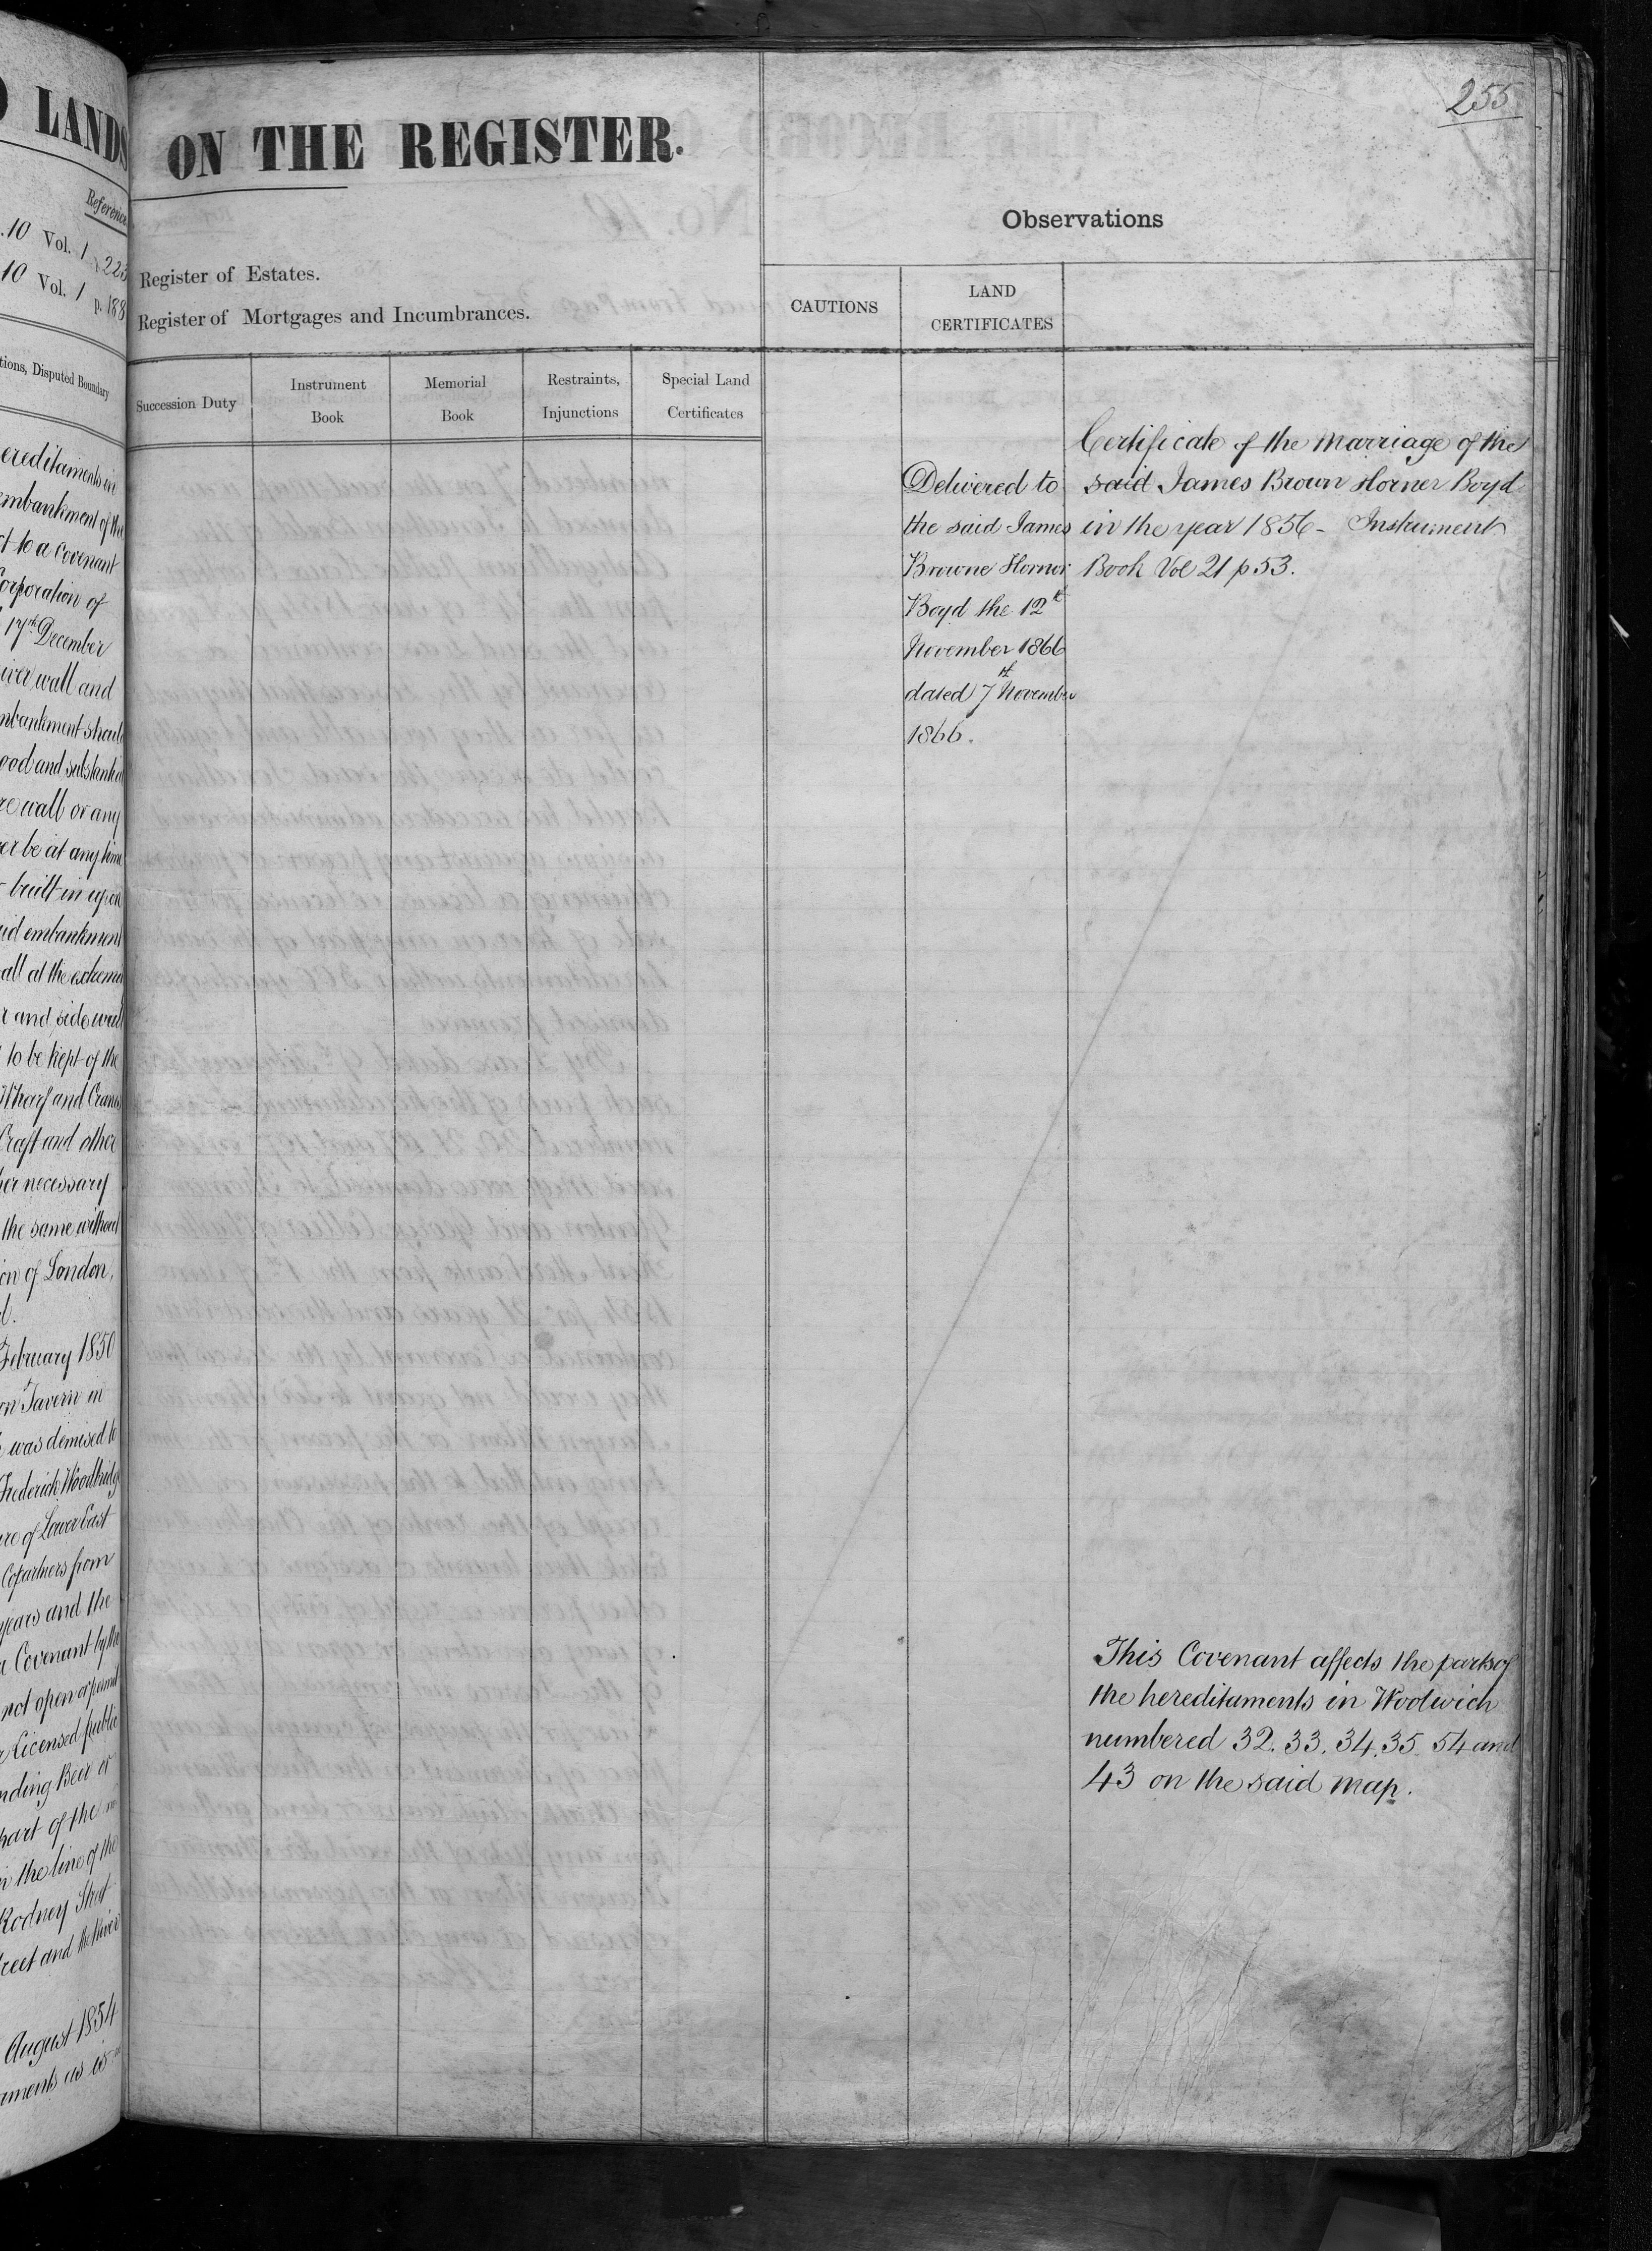 LANDS
Reference
10 Vol. 1 p. 223
10 Vol. 1 p. 188
tions, Disputed Boundary
ereditaments in
embankment of the
ct to a Covenant
Corporation of
17th December
iver wall and
mbankment should
ood and substantial
re wall or any
er be at any time
built in upon
id embankment
all at the extreme
r and side wall
to be kept of the
Wharf and Cranes
Craft and other
her necessary
the same without
on of London,
d.
February 1850
on Tavern in
was demised to
Frederick Woodbridge
re of Lower East
Copartners from
years and the
a Covenant by the
not open or permit
Licensed public
nding Beer or
part of the
in the line of the
Rodney Street
treet and the River
August 1854
aments as is
255
ON THE REGISTER.
Observations
Register of Estates.
Register of Mortgages and Incumbrances.
CAUTIONS
LAND
CERTIFICATES
Succession Duty
Instrument
Book
Memorial
Book
Restraints,
Injunctions
Special Land
Certificates
Delivered to
the said James
Browne Horner
Boyd the 12th
November 1866
dated 7th November
1866.
Certificate of the marriage of the
said James Brown Horner Boyd
in the year 1856 - Instrument
Book Vol 21 p 53.
This Covenant affects the parts of
the hereditaments in Woolwich
numbered 32. 33. 34. 35 54 and
43 on the said map.